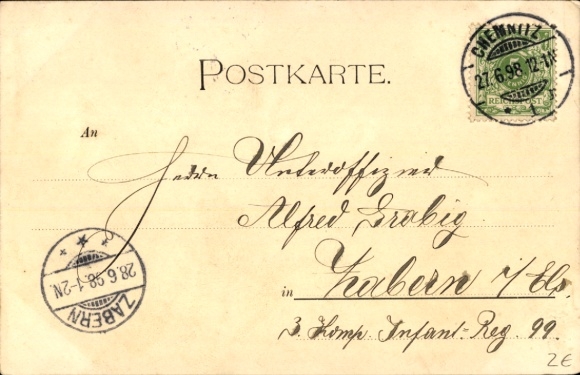 POSTKARTE.
CHEMNITZ
27.6.98.12-1N
1
5
REICHSPOST
An
Herrn Unteroffizier
Alfred Grabig
28.6.98.1-2N.
ZABERN
in Zabern i/Els.
3. Komp. Infant-Reg. 99.
2€